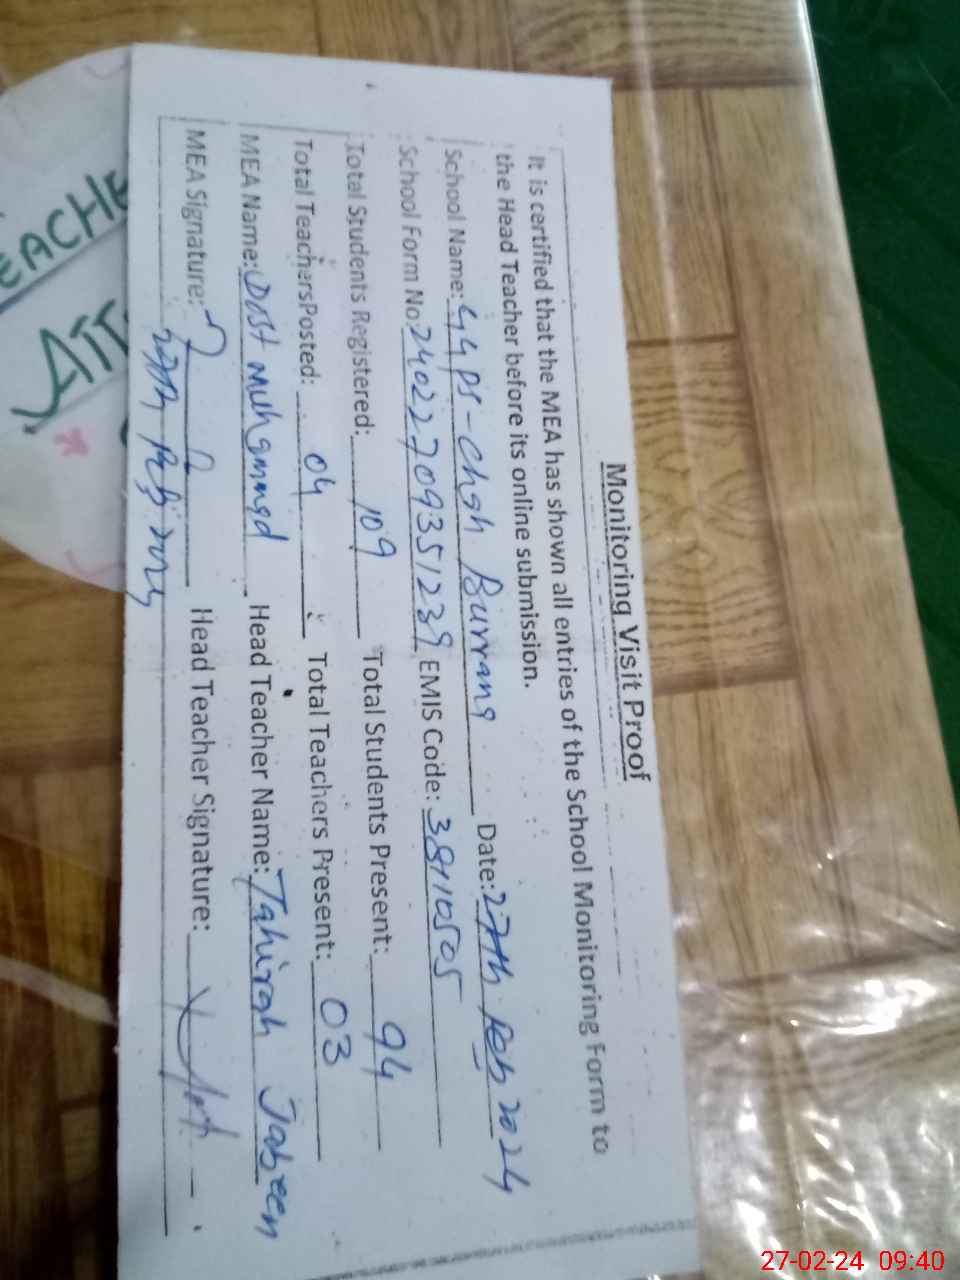 Monitoring Visit Proof
It is certified that the MEA has shown all entries of the School Monitoring Form to
the Head Teacher before its online submission.
School Name: GGPS-Chah Burrana Date: 27th Feb 2024
School Form No: 24022709351239 EMIS Code: 38110505
Total Students Registered: 109 Total Students Present: 94
Total Teachers Posted: 04 Total Teachers Present: 03
MEA Name: Dost Muhammad Head Teacher Name: Tahirah Jabeen
MEA Signature: Head Teacher Signature:
27th Feb 2024
EACHE
ATT
27-02-24 09:40